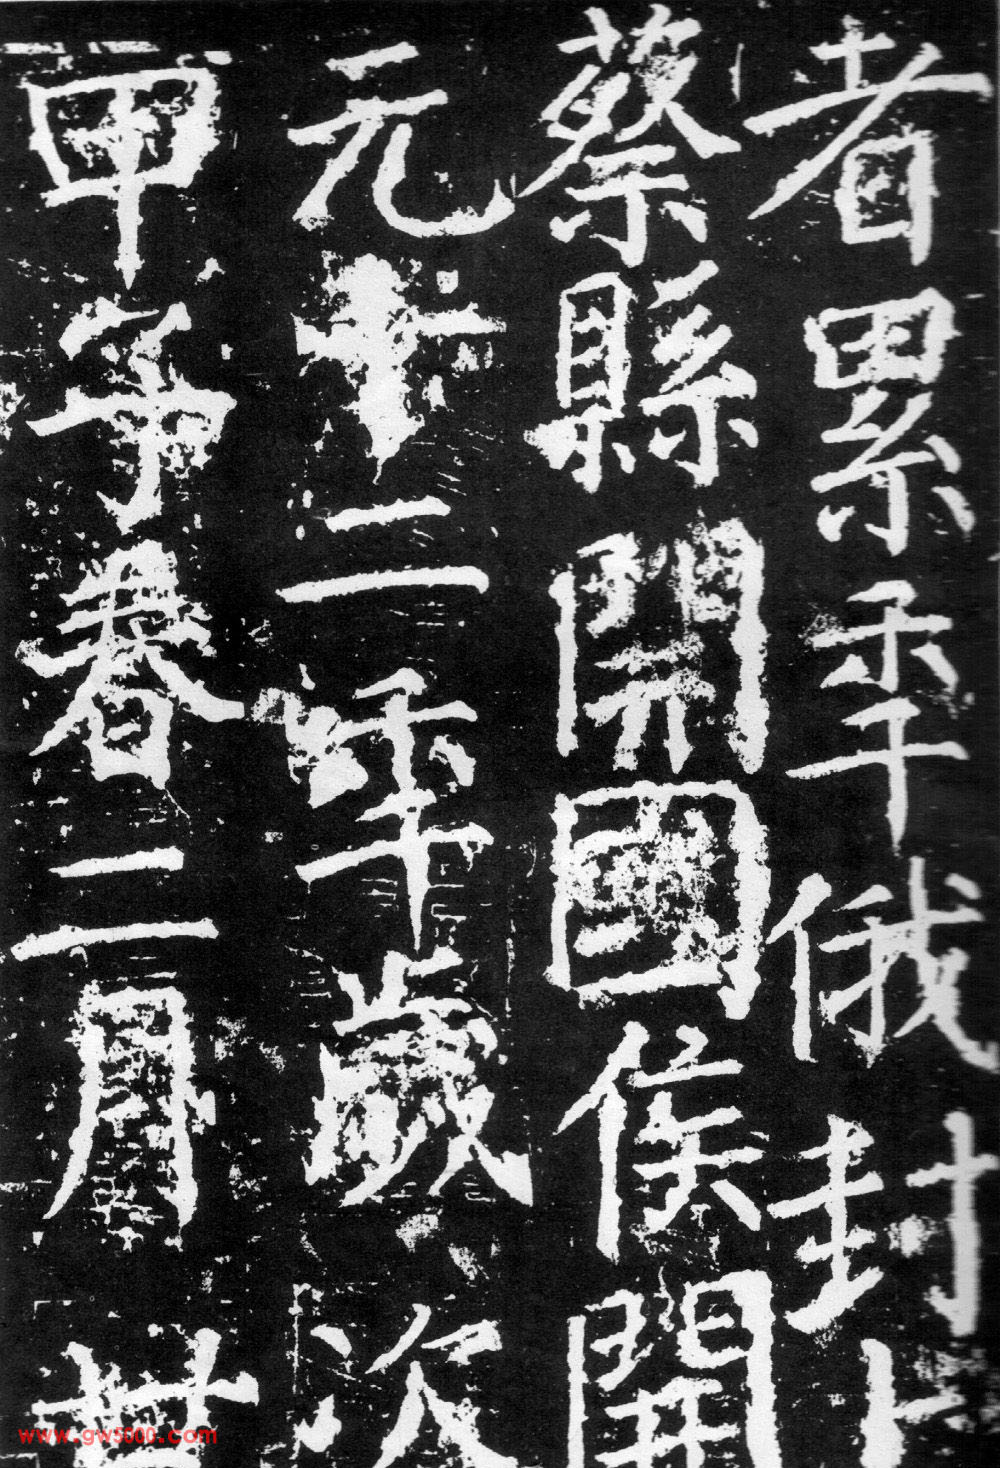 者累年俄封上
蔡縣開國侯開
元十二年歲次
甲子春二月廿
www.gw5000.com